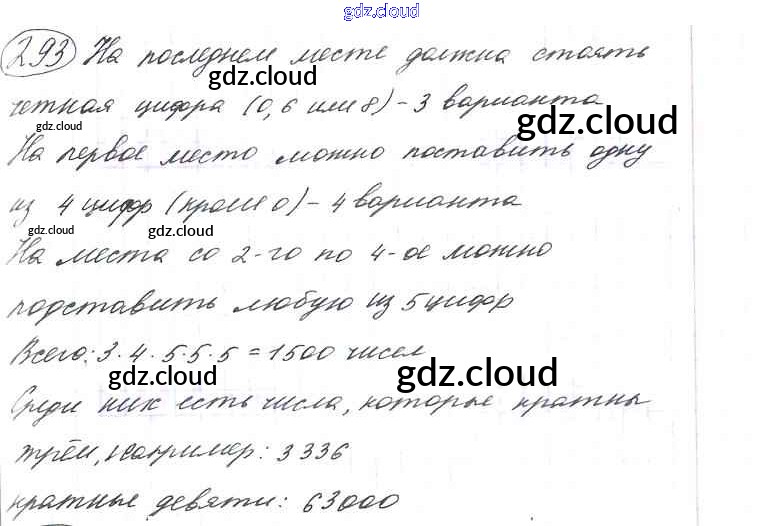 gdz.cloud
293 На последнем месте должна стоять
gdz.cloud
четная цифра (0, 6 или 8) – 3 варианта
gdz.cloud
gdz.cloud
На первое место можно поставить одну
из 4 цифр (кроме 0) – 4 варианта
gdz.cloud gdz.cloud
На места со 2-го по 4-ое можно
подставить любую из 5 цифр
Всего: 3·4·5·5·5 = 1500 чисел
gdz.cloud gdz.cloud
Среди них есть числа, которые кратны
трём, например: 3336
кратные девяти: 63000